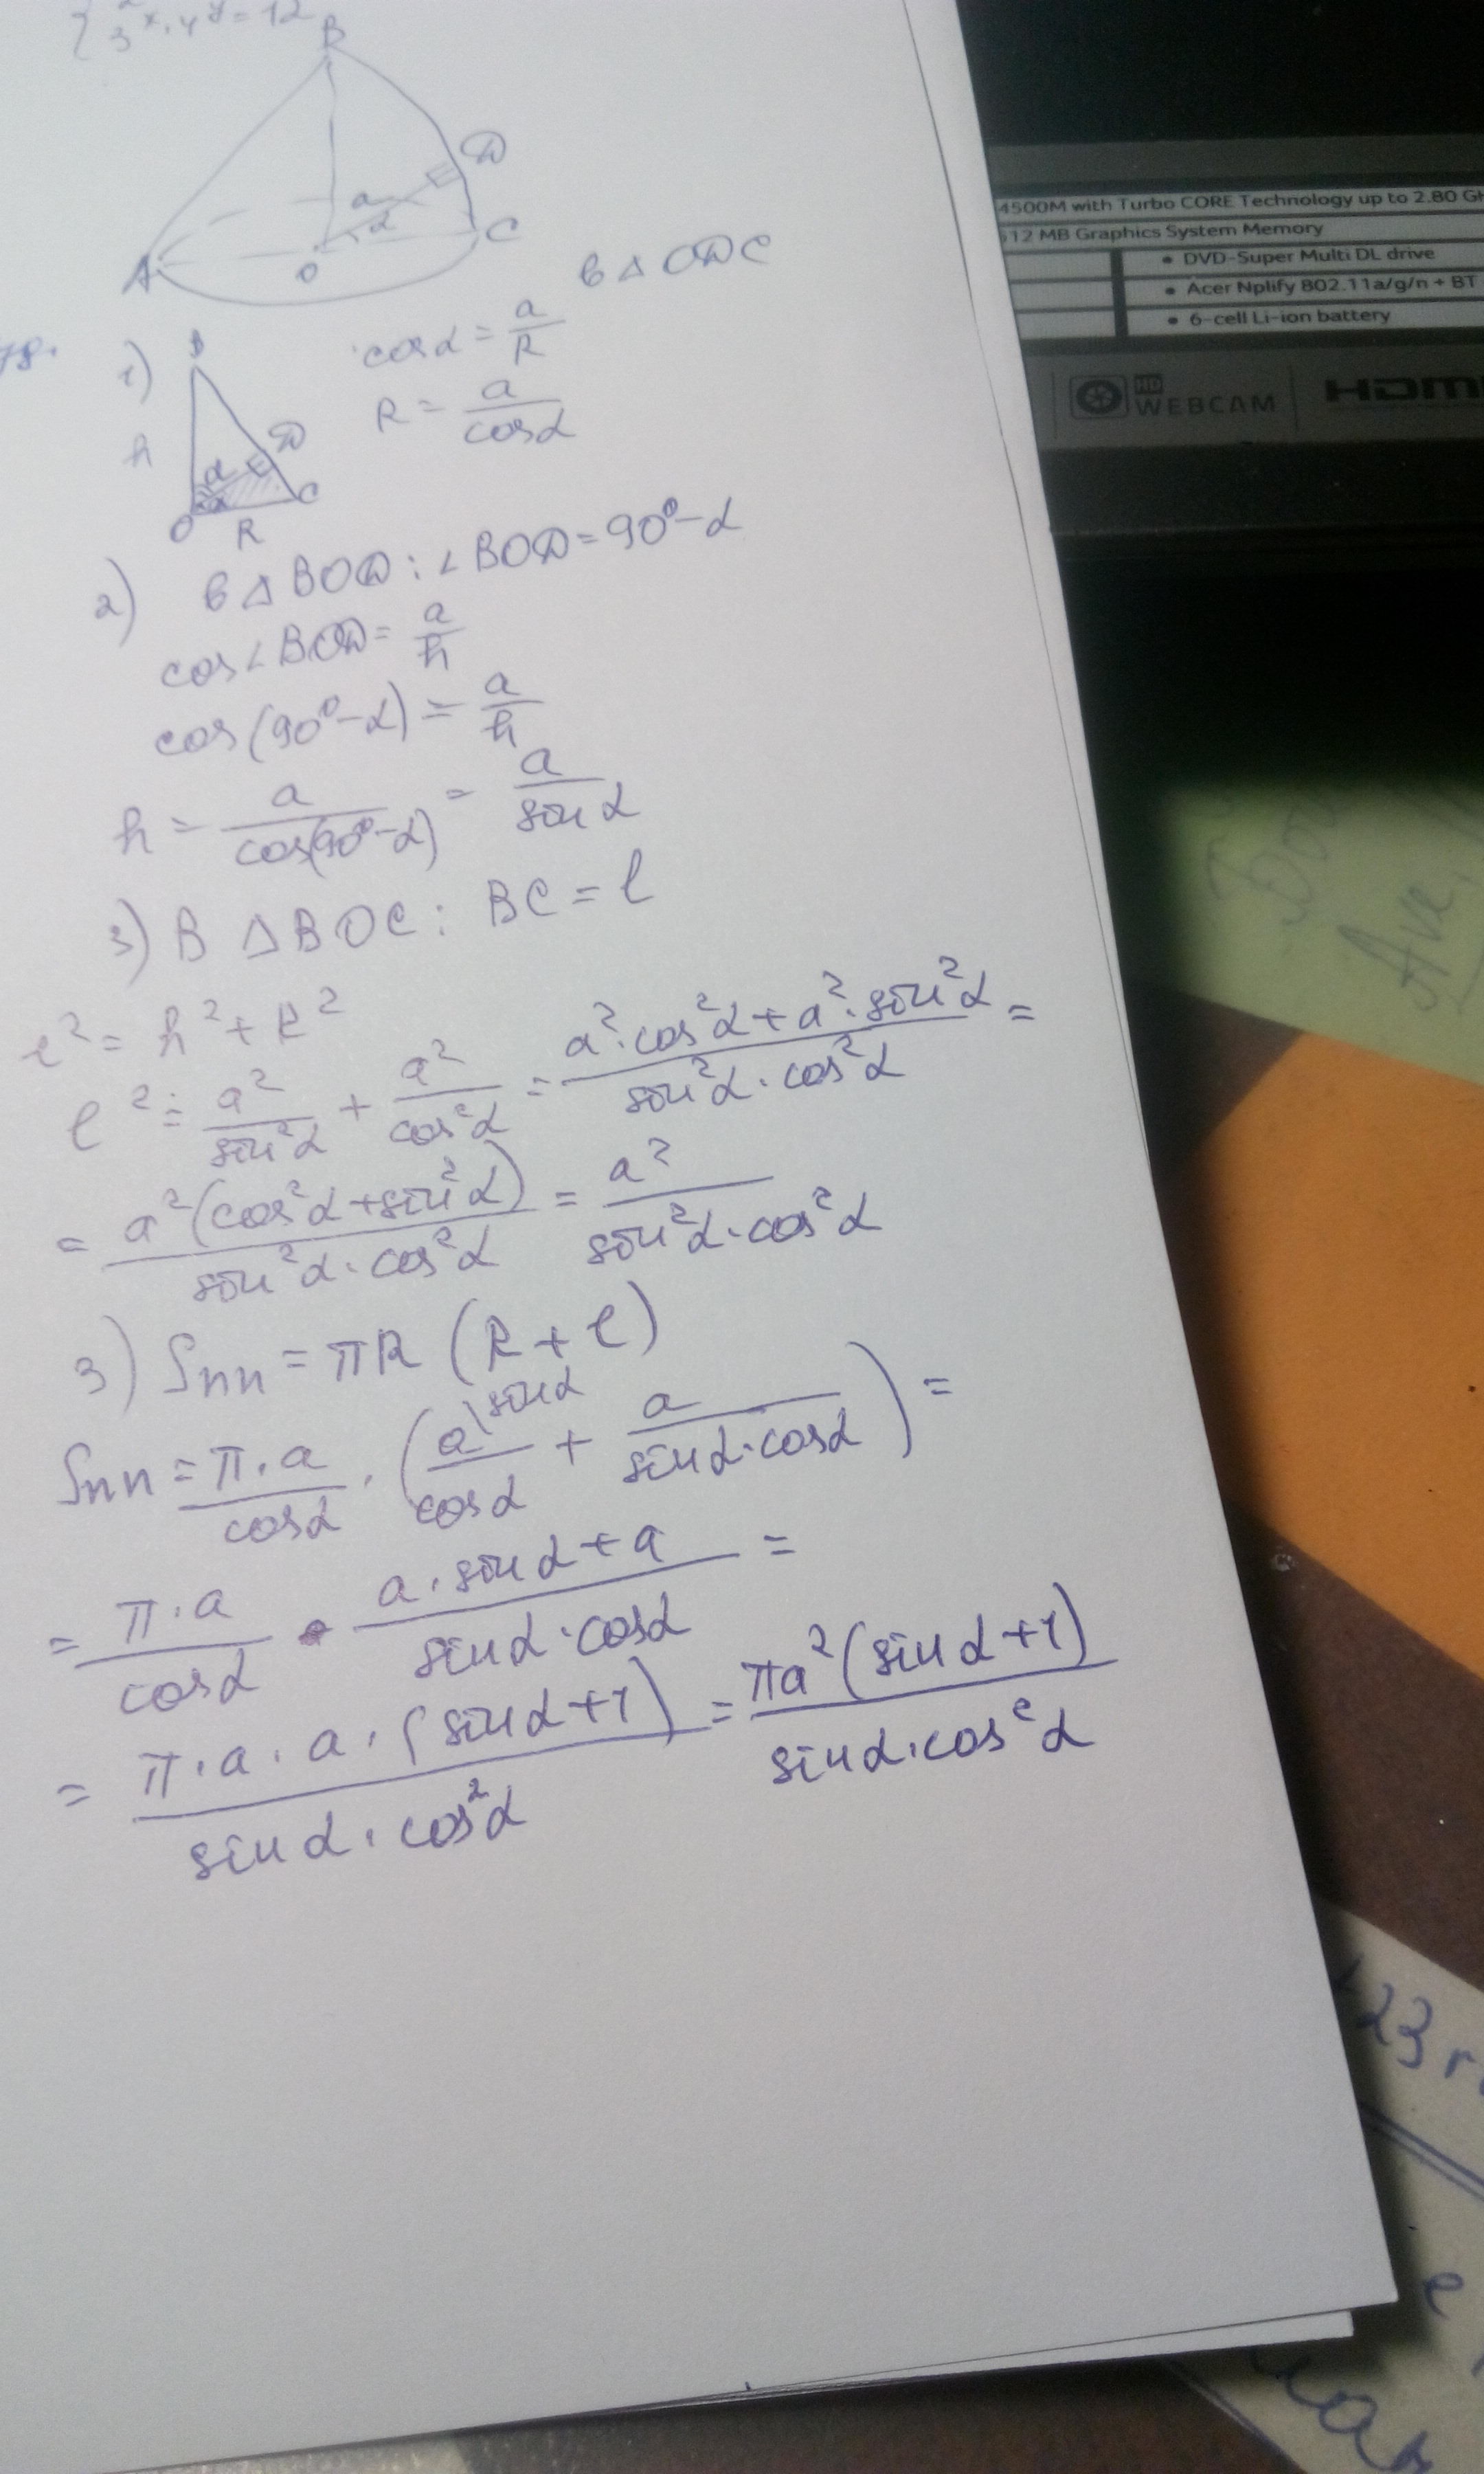 3ˣ·4ʸ=12
B
D
a
α
A
O
C
в Δ ODC
78.
1)
B
cosα = a/R
h
D
R = a/cosα
α
α
O
C
R
2) в Δ BOD: ∠BOD = 90°-α
cos∠BOD = a/h
cos(90°-α) = a/h
h = a/cos(90°-α) = a/sinα
3) В ΔBOC: BC = l
l² = h² + R²
l² = a²/sin²α + a²/cos²α = (a²·cos²α + a²·sin²α)/(sin²α·cos²α) =
= a²(cos²α + sin²α)/(sin²α·cos²α) = a²/(sin²α·cos²α)
3) Sпп = πR (R + l)
Sпп = π·a/cosα · (a\sinα/cosα + a/(sinα·cosα)) =
= π·a/cosα · (a·sinα + a)/(sinα·cosα) =
= π·a·a·(sinα+1)/(sinα·cos²α) = πa²(sinα+1)/(sinα·cos²α)
4500M with Turbo CORE Technology up to 2.80 GH
512 MB Graphics System Memory
• DVD-Super Multi DL drive
• Acer Nplify 802.11a/g/n + BT
• 6-cell Li-ion battery
HD WEBCAM
HDMI
Ave.
23 г